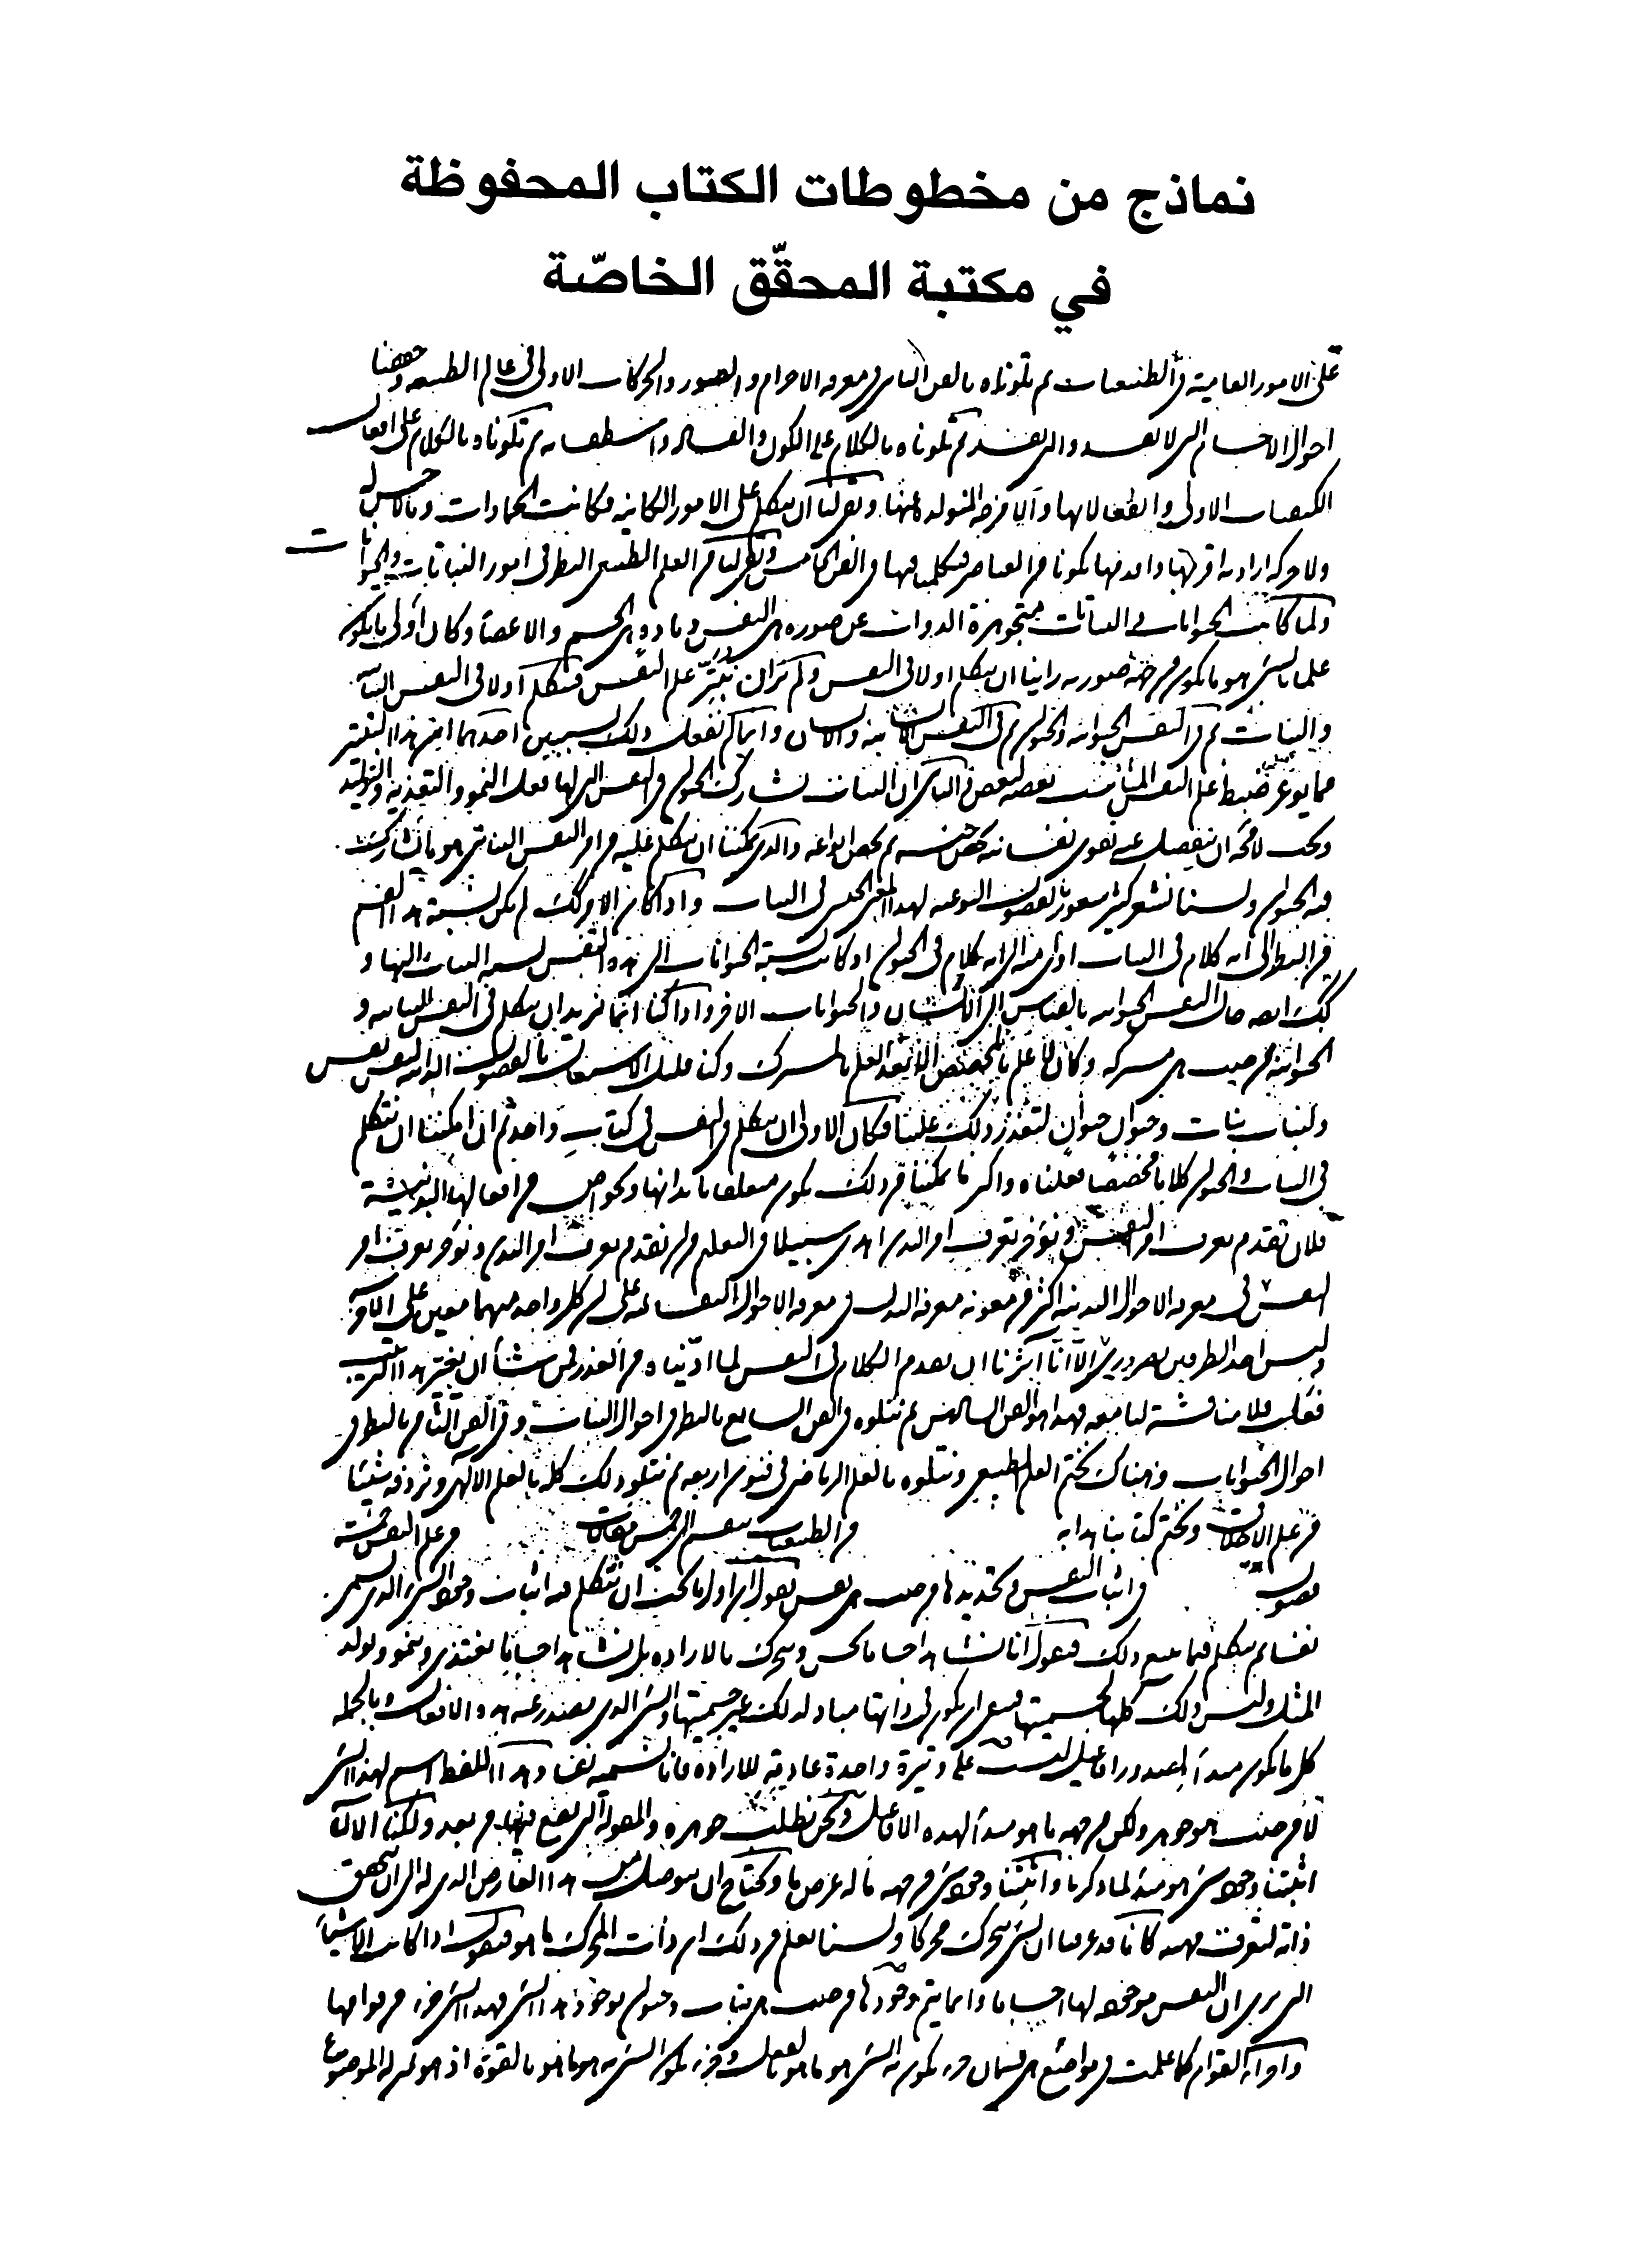 نماذج من مخطوطات الكتاب المحفوظة
في مكتبة المحقّق الخاصّة
على الامور العامية في الطبيعيات ثم تلوناه بالفن الثاني في معرفة الاجرام والصور والحركات الاولى في عالم الطبيعه وحققنا
احوال الاجسام التي لا تفسد والتي تفسد ثم تلوناه بالكلام على الكون والفساد واسطقساته ثم تلوناه بالكلام على افعال
الكيفيات الاولى وانفعالاتها والامزجه المتولده منها وبقى لنا ان نتكلم على الامور الكاينه فكانت الجمادات وما لا حس له
ولا حركه اراديه اقربها واقدمها تكونا من العناصر فتكلمنا فيها في الفن الخامس وبقى لنا من العلم الطبيعى النظر فى امور النباتات والحيوانات
ولما كانت الحيوانات والنباتات متجوهرة الذوات عن صورة هى النفس ومادة هى الجسم والاعضا وكان اولى ما يكون
علما بالشى هو ما يكون من جهة صورته راينا ان نتكلم اولا فى النفس ولم نر ان نبتر علم النفس فنتكلم اولا فى النفس النباتيه
والنبات ثم فى النفس الحيوانيه والحيوان ثم فى النفس الانسانيه والانسان وانما لم نفعل ذلك لسببين احدهما ان هذا التبتير
مما يوعر ضبط علم النفس المناسب بعضه لبعض والثانى ان النبات يشارك الحيوان فى النفس التى لها فعل النمو والتغذيه والتوليد
ويجب لا محالة ان ينفصل عنه بقوى نفسانيه تخص جنسه ثم تخص انواعه والذى يمكننا ان نتكلم عليه من امر النفس النباتى هو ما يشارك
فيه الحيوان ولسنا نشعر كثير شعور بالفصول النوعيه لهذا المعنى الجنسى فى النبات واذا كان الامر كذلك لم يكن نسبة هذا القسم
من النظر الى انه كلام فى النبات اولى منه الى انه كلام فى الحيوان اذ كانت نسبة الحيوانات الى هذه النفس نسبه النبات اليها و
كذلك ايضا حال النفس الحيوانيه بالقياس الى الانسان والحيوانات الاخر واذا كنا انما نريد ان نتكلم فى النفس النباتيه و
الحيوانيه من حيث هى مشتركه وكان لا علم بالمخصص الا بعد العلم بالمشترك وكنا قليلى الاشتغال بالفصول الذاتيه لنفس نفس
ولنبات نبات وحيوان حيوان لتعذر ذلك علينا فكان الاولى ان نتكلم فى النفس فى كتاب واحد ثم ان امكننا ان نتكلم
فى النبات والحيوان كلاما مخصصا فعلناه واكثر ما يمكننا من ذلك يكون متعلقا بابدانها وبخواص من افعالها البدنية
فلان نقدم تعرف امر النفس ونوخر تعرف امر البدن اهدى سبيلا فى التعليم من ان نقدم تعرف امر البدن ونوخر تعرف امر
النفس فى معرفه الاحوال البدنيه اكثر من معونه معرفه البدن فى معرفه الاحوال النفسانيه على ان كل واحد منهما معين على الاخر
وليس احد الطرفين بضرورى التقديم الا انا آثرنا ان نقدم الكلام فى النفس لما ادّيناه من العذر فمن شاء ان يغير هذا الترتيب
فعل بلا مناقشة لنا معه فهذا هو الفن السادس ثم نتلوه فى الفن السابع بالنظر فى احوال النبات وفى الفن الثامن بالنظر فى
احوال الحيوانات وهناك نختم العلم الطبيعى ونتلوه بالعلم الرياضى فى فنون اربعه ثم نتلو ذلك كله بالعلم الالهى ونردفه شيئا
من علم الاخلاق ونختم كتابنا هذا به
فصول فى اثبات النفس وتحديدها من حيث هى نفس نقول ان اول ما يجب ان نتكلم فيه اثبات وجود الشى الذى يسمى
نفسا ثم نتكلم فيما يتبع ذلك فنقول انا نشاهد اجساما تحس وتتحرك بالاراده بل نشاهد اجساما تغتذى وتنمو وتولد
المثل وليس ذلك كلها لجسميتها فبقى ان يكون فى ذواتها مباد لذلك غير جسميتها والشى الذى يصدر عنه هذه الافعال وبالجمله
كل ما يكون مبدا لصدور افاعيل ليست على وتيرة واحدة عادمة للاراده فانا نسميه نفسا وهذا اللفظ اسم لهذا الشى
لا من حيث هو جوهر ولكن من جهه ما هو مبدأ لهذه الافاعيل ونحن نطلب جوهره والمقوله التى يقع فيها من بعد ولكنا الان
اثبتنا وجود شى هو مبدا لما ذكرنا واثبتنا وجود شى من جهه ما له عرض ما ونحتاج ان نتوصل من هذا العارض الذى له الى ان نحقق
ذاته لنعرف مهيته كانا قد عرفنا ان لشى يتحرك محركا ولسنا نعلم من ذلك ان ذات المحرك ما هو فنقول اذا كانت الاشيا
التى نرى ان النفس موجوده لها اجساما وانما يتم وجودها من حيث هى نبات وحيوان بوجود هذا الشى فهذا الشى جزء من قوامها
واجزاء القوام كما علمت فى مواضع هى قسمان جزء يكون به الشى هو ما هو بالفعل وجزء يكون الشى به هو ما هو بالقوة اذ هو بمنزلة الموضوع